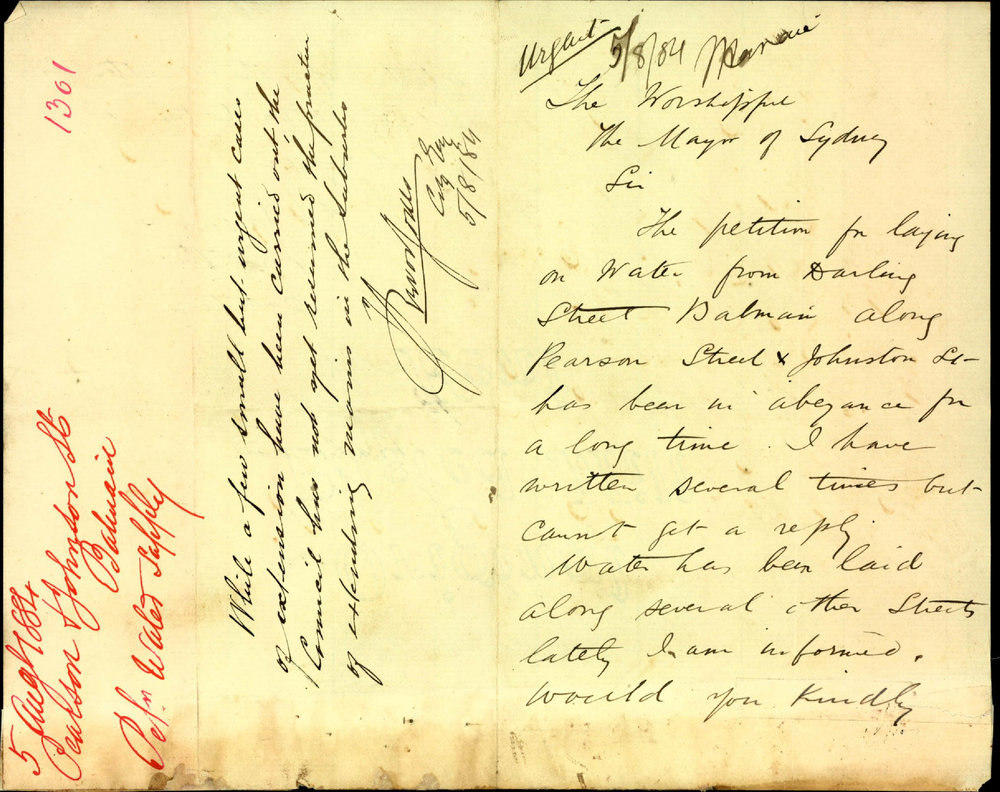 1301
5 Augt 1884
Pearson & Johnston St
Balmain
Petn Water Supply
While a few small but urgent cases
of extension have been carried out the
Council has not yet resumed the practice
of extending mains in the suburbs
City Eng
5/8/84
Urgent
5/8/84
The Worshipful
The Mayor of Sydney
Sir
The petition for laying
on Water from Darling
Street Balmain along
Pearson Street & Johnston St
has been in abeyance for
a long time. I have
written several times but
cannot get a reply.
Water has been laid
along several other Streets
lately I am informed.
Would you Kindly